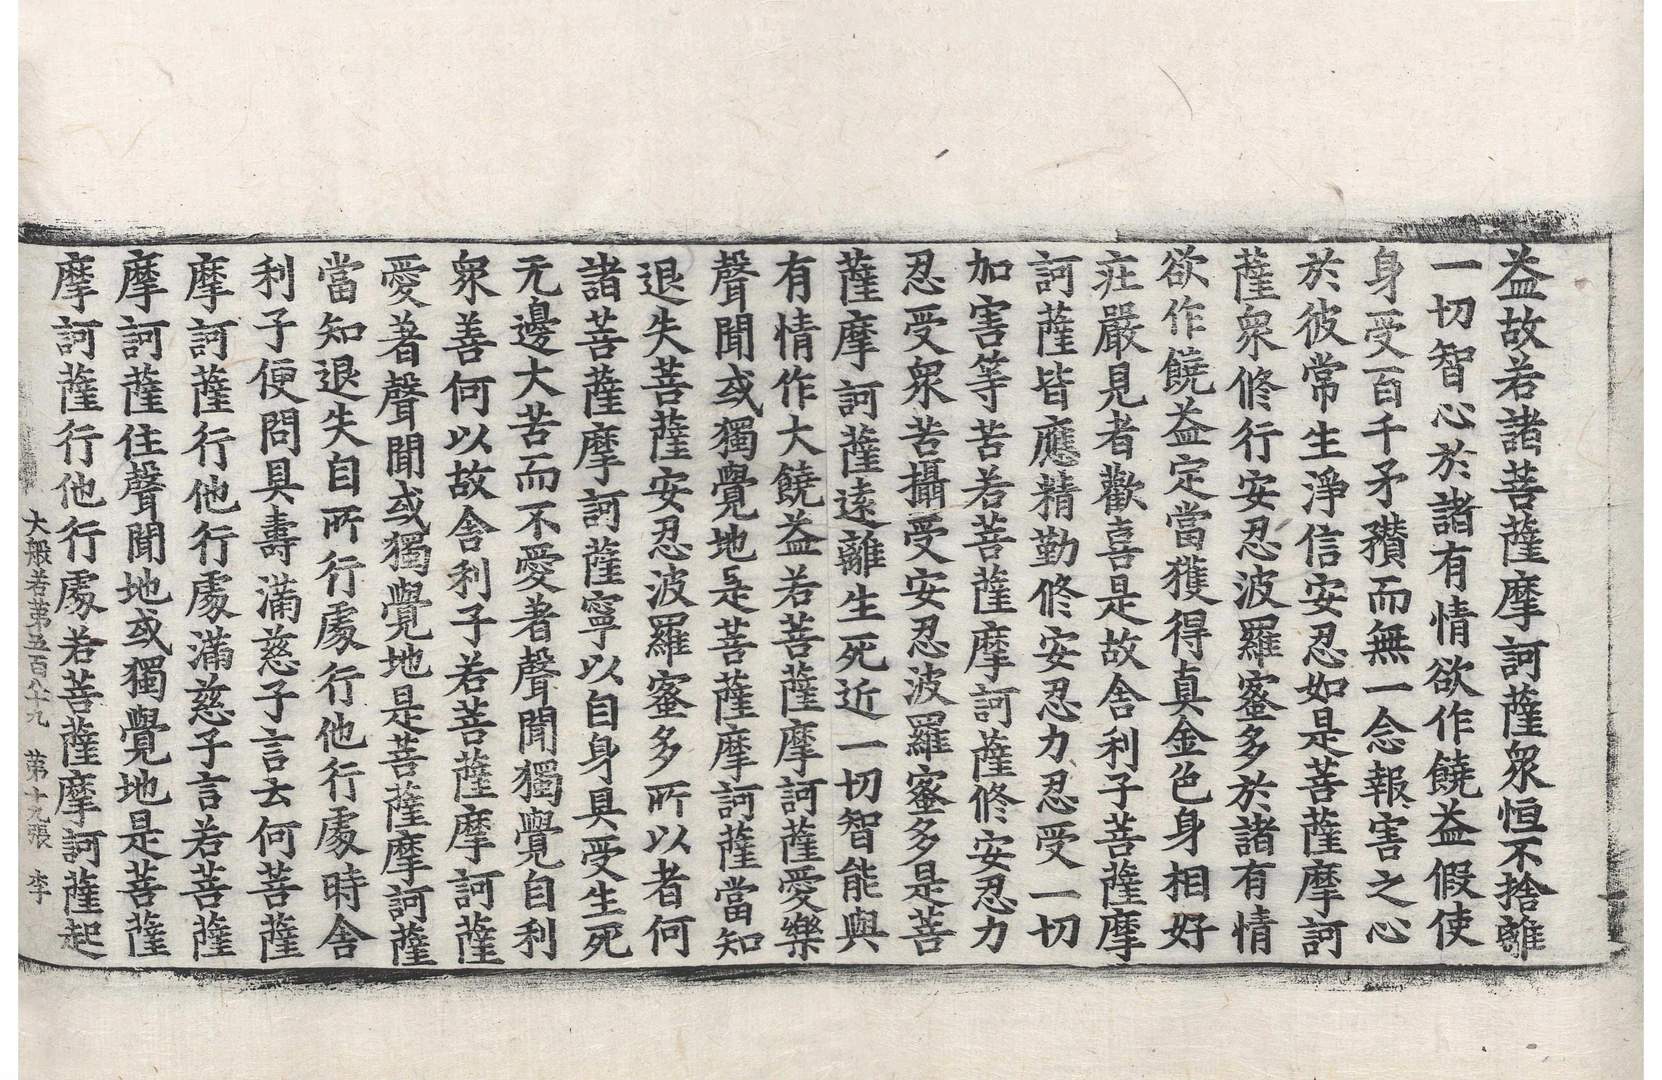 益故若諸菩薩摩訶薩衆恒不捨離
一切智心於諸有情欲作饒益假使
身受百千矛穳而無一念報害之心
於彼常生淨信安忍如是菩薩摩訶
薩衆修行安忍波羅蜜多於諸有情
欲作饒益定當獲得真金色身相好
莊嚴見者歡喜是故舍利子菩薩摩
訶薩皆應精勤修安忍力忍受一切
加害等苦若菩薩摩訶薩修安忍力
忍受衆苦攝受安忍波羅蜜多是菩
薩摩訶薩遠離生死近一切智能與
有情作大饒益若菩薩摩訶薩愛樂
聲聞或獨覺地是菩薩摩訶薩當知
退失菩薩安忍波羅蜜多所以者何
諸菩薩摩訶薩寧以自身具受生死
无邊大苦而不愛著聲聞獨覺自利
衆善何以故舍利子若菩薩摩訶薩
愛著聲聞或獨覺地是菩薩摩訶薩
當知退失自所行處行他行處時舍
利子便問具壽滿慈子言云何菩薩
摩訶薩行他行處滿慈子言若菩薩
摩訶薩住聲聞地或獨覺地是菩薩
摩訶薩行他行處若菩薩摩訶薩起
大般若第五百八十九 第十九張 李